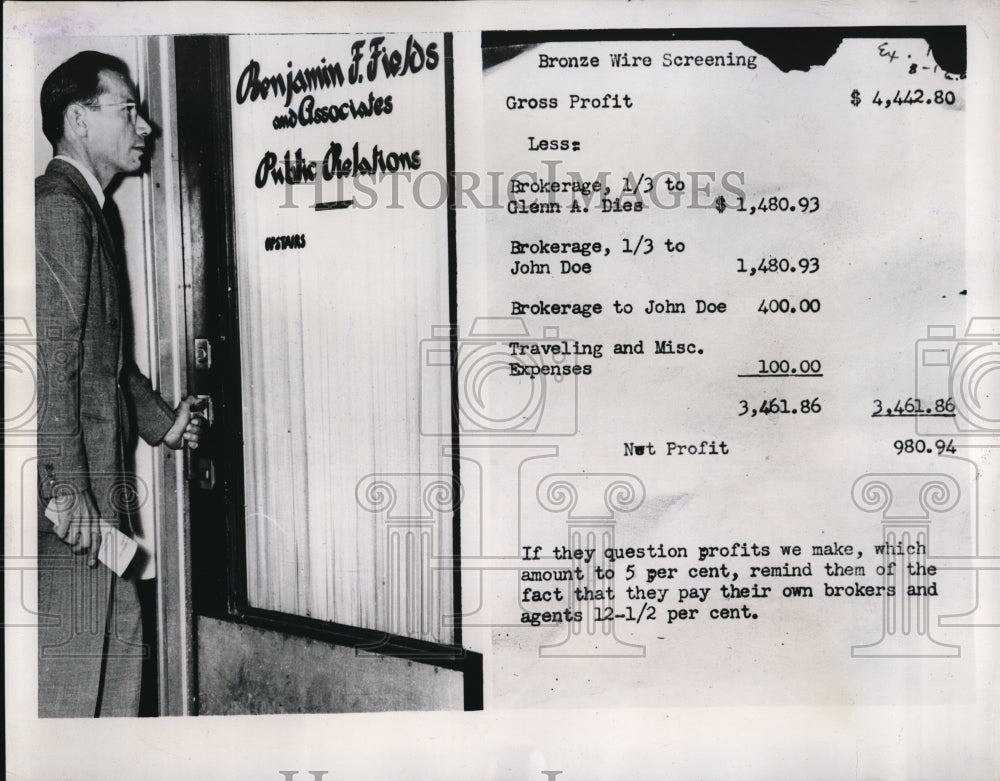 Benjamin F. Fields
and Associates
Public Relations
UPSTAIRS
Bronze Wire Screening
Ex.
Gross Profit $ 4,442.80
Less:
Brokerage, 1/3 to
Glenn A. Dies $ 1,480.93
Brokerage, 1/3 to
John Doe 1,480.93
Brokerage to John Doe 400.00
Traveling and Misc.
Expenses 100.00
3,461.86 3,461.86
Net Profit 980.94
If they question profits we make, which
amount to 5 per cent, remind them of the
fact that they pay their own brokers and
agents 12-1/2 per cent.
HISTORIC IMAGES